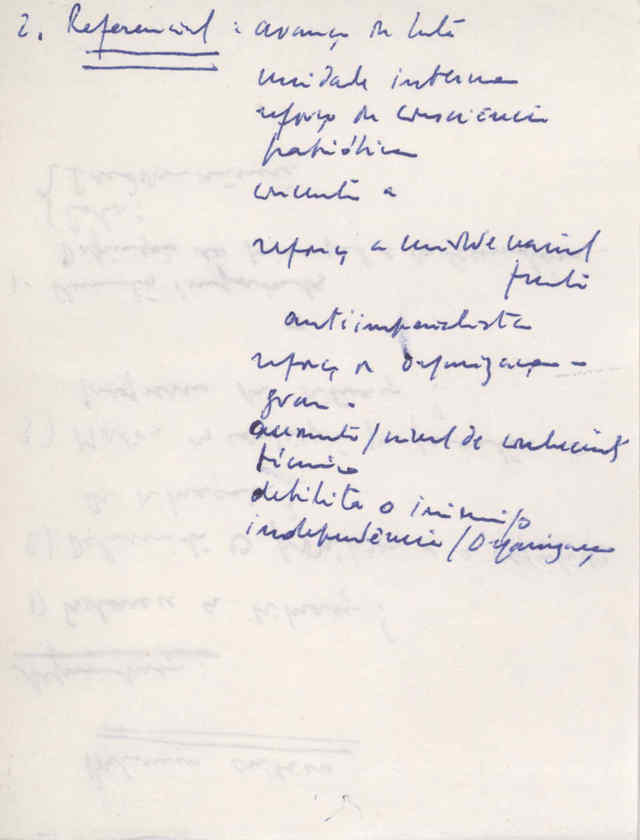 2. Referencial: avanço da luta
unidade interna
reforço da consciência
patriótica
a
reforça a unidade nacional
frente
antiimperialista
reforça a organização -
aumenta / nivel de conheciment
técnico
debilita o inimigo
independência / Organização